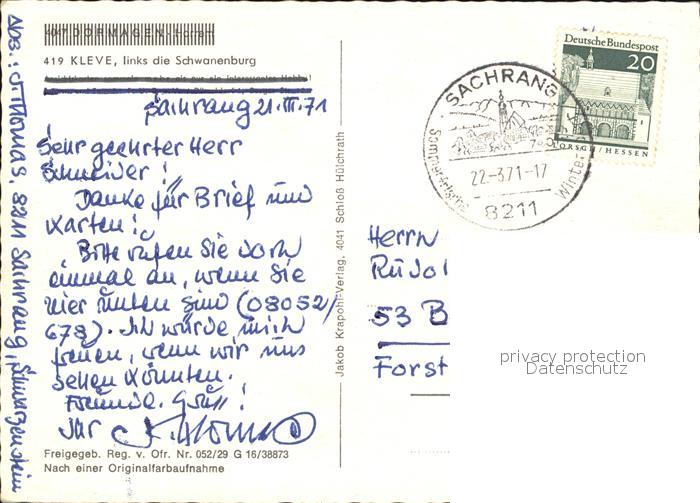 4047 DORMAGEN
419 KLEVE, links die Schwanenburg
Sachrang 21.III.71
Sehr geehrter Herr
Schneider!
Danke für Brief und
Karten!
Bitte rufen Sie doch
einmal an, wenn Sie
hier unten sind (08052/
678). Ich würde mich
freuen, wenn wir uns
sehen könnten.
Freundl. Gruß!
Ihr
Freigegeb. Reg. v. Ofr. Nr. 052/29 G 16/38873
Nach einer Originalfarbaufnahme
Abs.: Thomas, 8211 Sachrang, Schwarzenstein
Jakob Krapohl-Verlag, 4041 Schloß Hülchrath
SACHRANG
Sommerfrische
Winter
22.-3.71.-17
8211
Deutsche Bundespost
20
LORSCH/HESSEN
Herrn
Rudol
53 B
Forst
privacy protection
Datenschutz